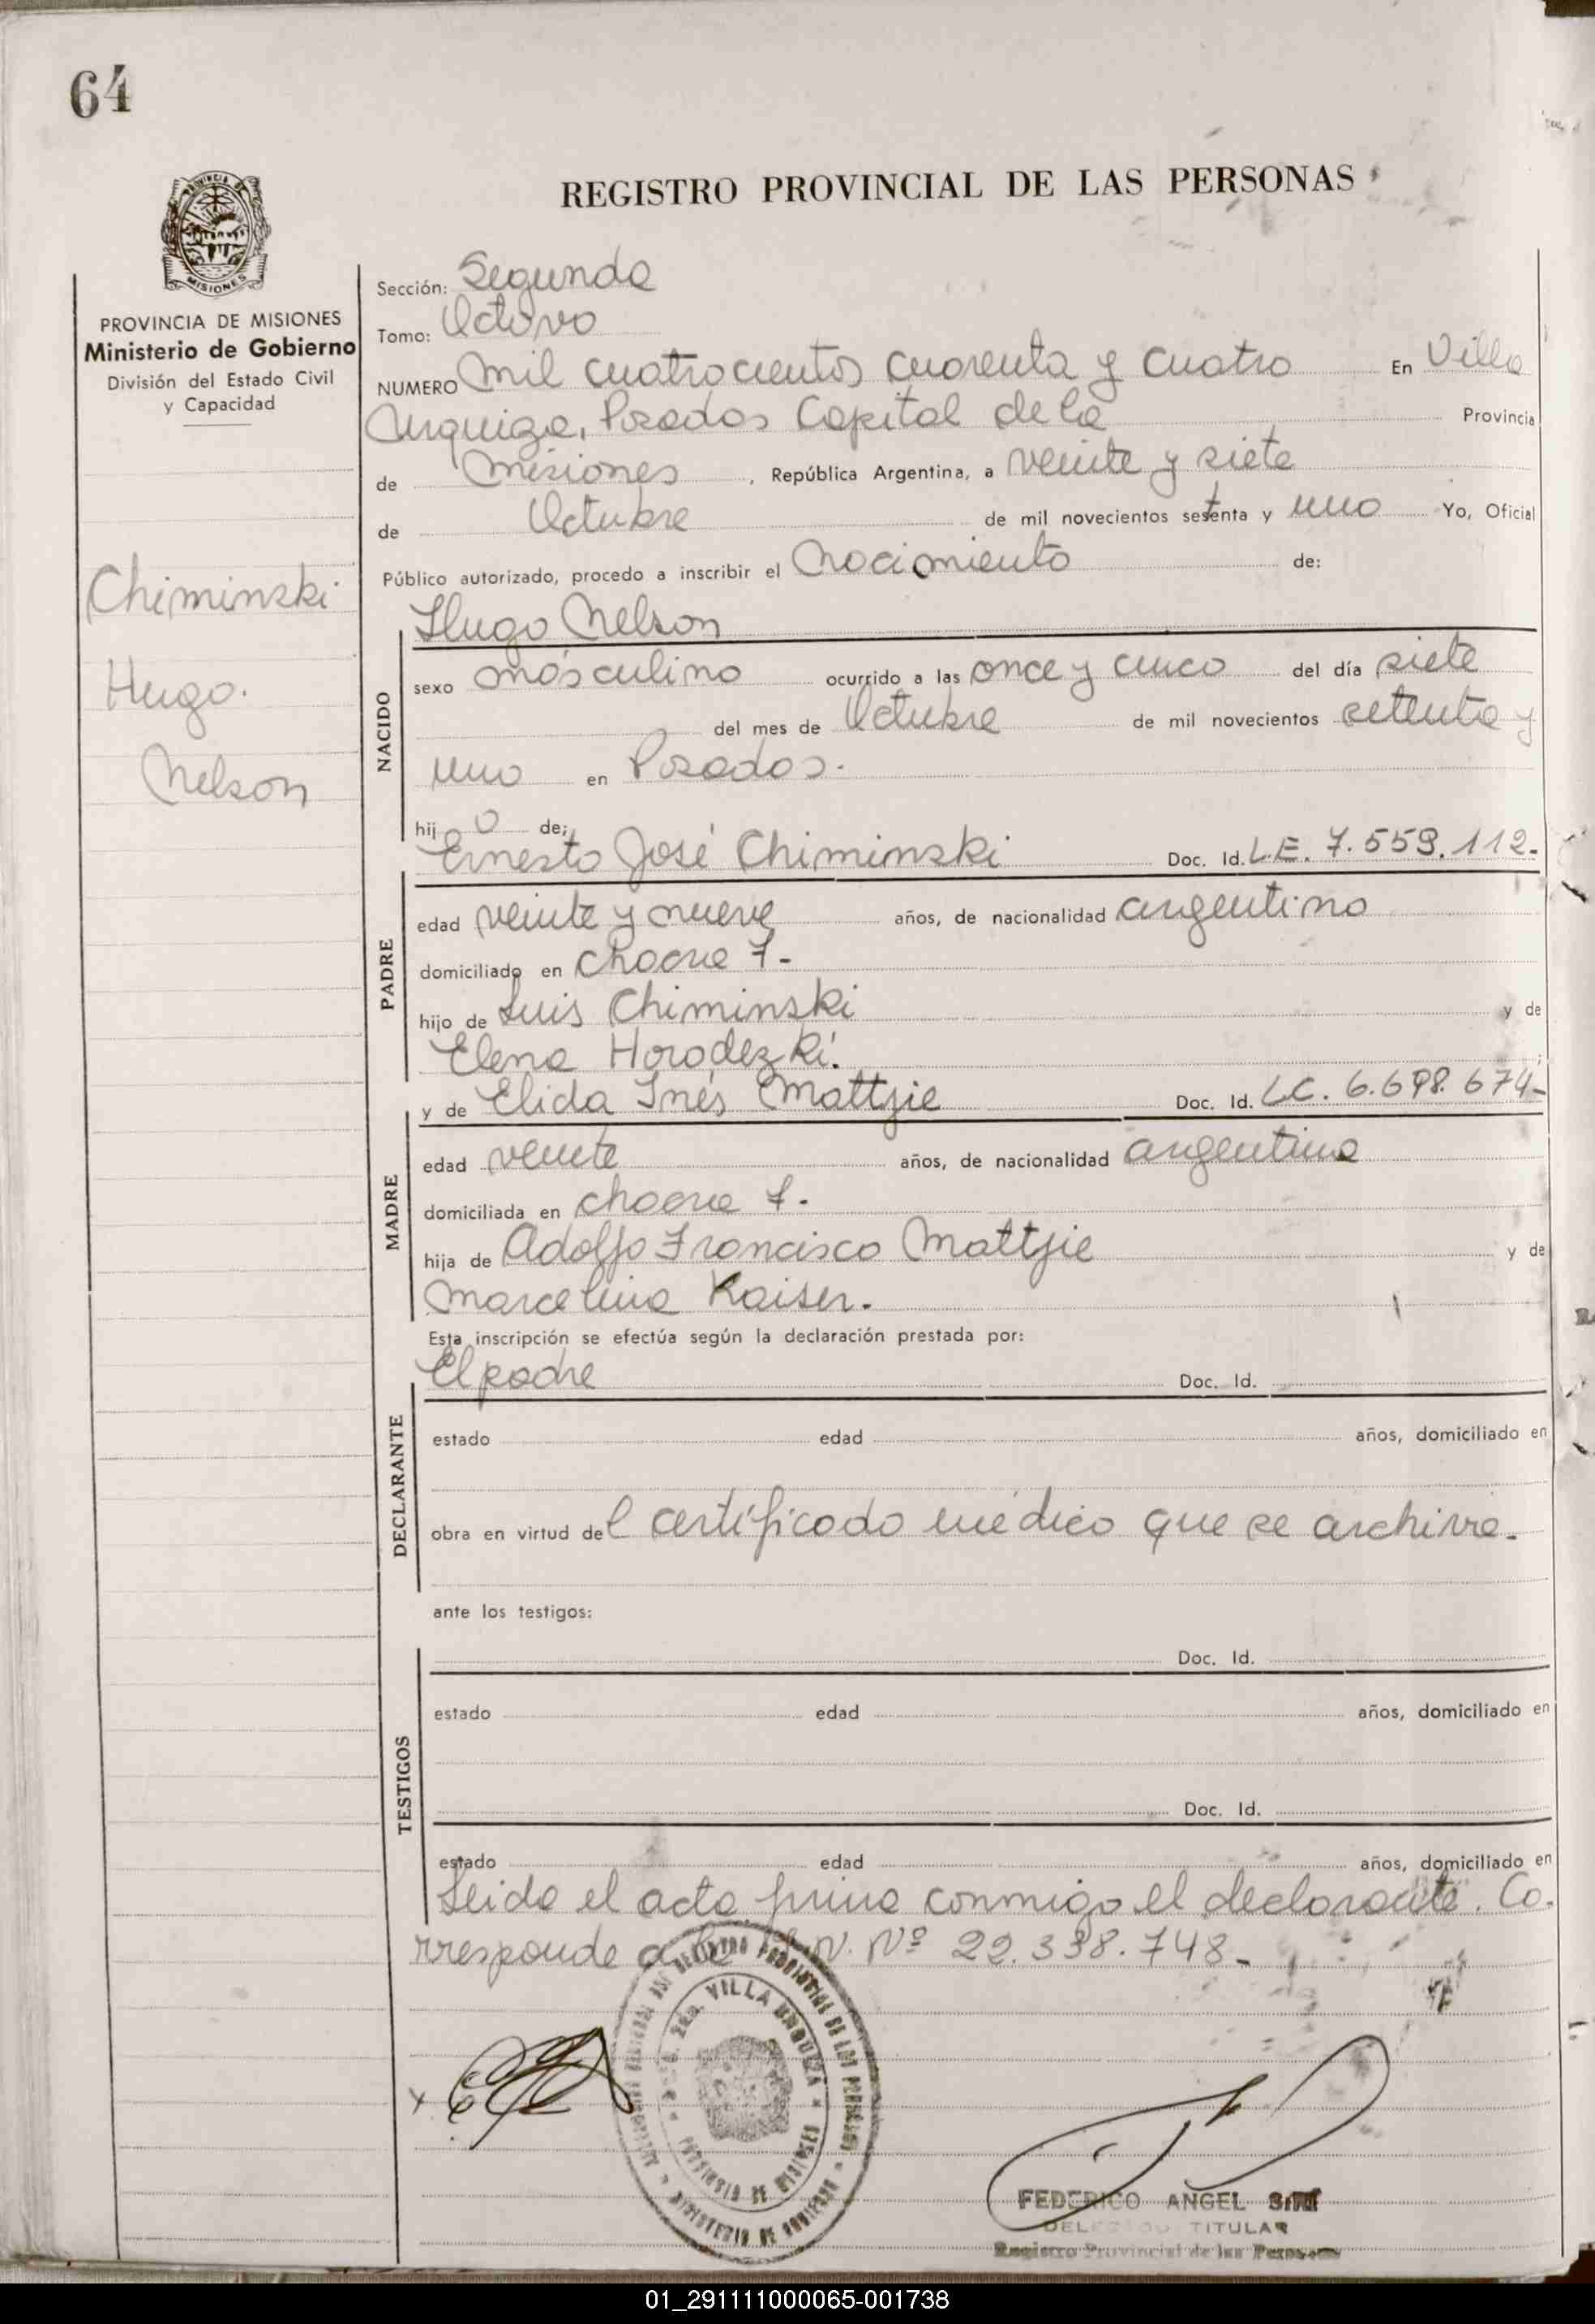 64
REGISTRO PROVINCIAL DE LAS PERSONAS
PROVINCIA DE MISIONES
MISIONES
PROVINCIA DE MISIONES
Ministerio de Gobierno
División del Estado Civil
y Capacidad
Chiminski
Hugo.
Nelson
Sección: Segunda
Tomo: Octavo
NUMERO Mil cuatrocientos cuarenta y cuatro En Villa
Urquiza, Posadas Capital de la Provincia
de Misiones, República Argentina, a veinte y siete
de Octubre de mil novecientos setenta y uno Yo, Oficial
Público autorizado, procedo a inscribir el Nacimiento de:
Hugo Nelson
NACIDO
sexo masculino ocurrido a las once y cinco del día siete
del mes de Octubre de mil novecientos setenta y
uno en Posadas.
hijo de:
Ernesto José Chiminski Doc. Id. L.E. 7.559.112.
PADRE
edad veinte y nueve años, de nacionalidad argentino
domiciliado en chacra 7.-
hijo de Luis Chiminski y de
Elena Horodezki.
y de Elida Inés Mattjie Doc. Id. LC. 6.698.674-
MADRE
edad veinte años, de nacionalidad argentina
domiciliada en chacra 7.
hija de Adolfo Francisco Mattjie y de
Marcelina Kaiser.
Esta inscripción se efectúa según la declaración prestada por:
El padre Doc. Id.
DECLARANTE
estado edad años, domiciliado en
obra en virtud del certificado médico que se archiva.
ante los testigos:
Doc. Id.
TESTIGOS
estado edad años, domiciliado en
Doc. Id.
estado edad años, domiciliado en
Leida el acta firma conmigo el declarante. Co.
rresponde a la N. Nº 22.338.748-
VILLA URQUIZA
FEDERICO ANGEL
TITULAR
Registro Provincial de las Personas
01_291111000065-001738